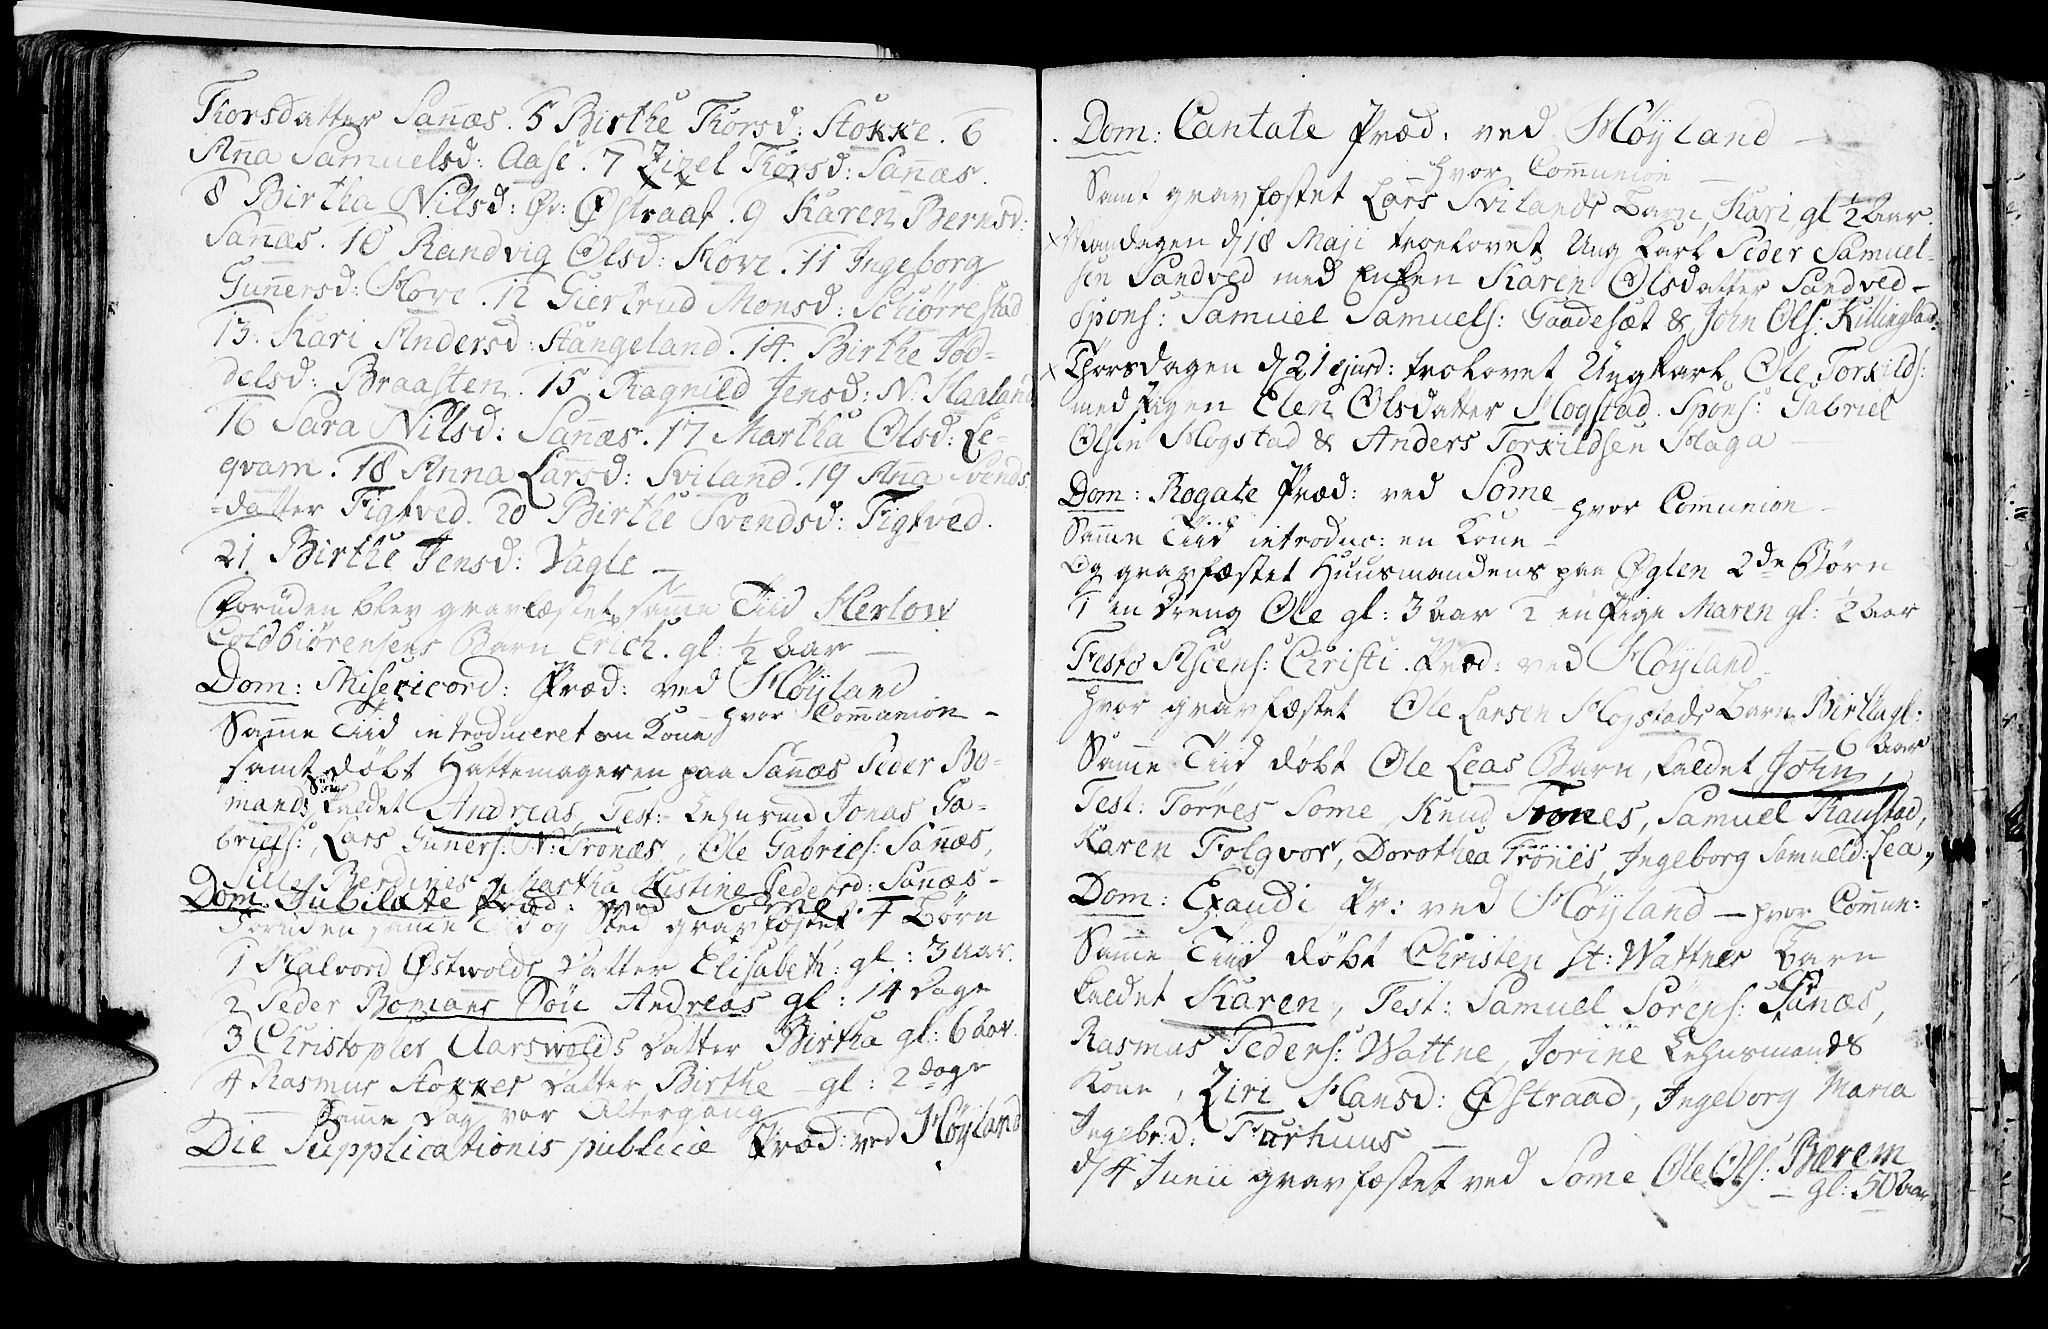 Thorsdatter Sañæs. 5 Birthe Thorsd: Stokke. 6
Aña Samuelsd: Aase. 7 Zizel Thorsd: Sañæs.
8 Birtha Nilsd: Øv: Østraat. 9 Karen Bernsd:
Sañæs. 10 Randvig Olsd: Hove. 11 Ingeborg
Guñersd: Hove. 12 Giertrud Monsd: Schiørrestad
13. Kari Andersd: Stangeland. 14. Birthe Jod-
delsd: Braasten. 15. Ragnild Jensd: N. Haaland
16 Sara Nilsd: Sañæs. 17 Martha Olsd: Le-
qvam. 18 Anna Larsd: Sviland. 19 Aña Svends
=datter Figtved. 20 Birthe Svendsd: Figtved.
21 Birthe Jensd: Vagle —
Foruden blev gravfæstet same Tiid Herlow
Coldbiørensens Barn Erich. gl: ½ Aar —
Dom: Misericord: Præd: ved Høyland
hvor Communion —
Same Tiid introduceret en Kone
samt døbt Hattemageren paa Sañæs Peder Bo-
mands Søn kaldet Andreas, Test: Lehnsmd Jonas Ga-
briels:, Lars Guners: N: Tronæs, Ole Gabriels: Sañæs,
Sille Berdines, Martha Kistine Pedersd: Sañæs —
Dom. Jubilate Præd: ved Some.
Foruden same Tiid og Sted gravfæstet 4 Børn
1 Halvord Østwolds Datter Elisabeth: gl: 3 Aar.
2 Peder Bomans Søn Andreas gl: 14 Dage
3 Christopher Aarswolds Datter Birtha gl: 6 Aar.
4 Rasmus Stokkes Datter Birthe — gl: 2 Dage
Same Dag var Altergang
Die Supplicationis publicæ Præd: ved Høyland
Dom: Cantate Præd: ved Høyland —
hvor Communion —
Samt gravfæstet Lars Svilands Barn, Kari gl ½ Aar.
Mandagen d 18 Maji troelovet Ung Karl Peder Samuel-
sen Sandved med Enken Karen Olsdatter Sandved —
Spons: Samuel Samuels: Gaadesæt & John Ols: Killingland
Thorsdagen d 21 ejusd: troelovet Ungkarl Ole Torkilds:
med Pigen Elen Olsdatter Hogstad. Spons: Gabriel
Olsen Hogstad & Anders Torkildsen Haga —
Dom: Rogate Præd: ved Some — hvor Communion —
Same Tiid introduc: en Kone —
Og gravfæstet Huusmandens paa Øglen 2de Børn
1 en Dreng Ole gl: 3 Aar 2 en Pige Maren gl: ½ Aar
Festo Ascens: Christi. Præd: ved Høyland
hvor gravfæstet Ole Larsen Hogstads Barn Birtha gl:
6 Aar
Same Tiid døbt Ole Leas Barn, kaldet John,
Test: Torres Some, Knud Trones, Samuel Raustad,
Karen Folqvor, Dorothea Trones, Ingeborg Samueld: Lea,
Dom: Exaudi Pr: ved Høyland — hvor Comun:
Same Tiid døbt Christen St: Wattnes Barn
kaldet Karen, Test: Samuel Sørens: Sañæs,
Rasmus Peders: Wattne, Jorine Lehnsmands
Kone, Ziri Hansd: Østraad, Ingeborg Maria
Ingebr:d: Fuurhuus —
d 4 Junii gravfæstet ved Some Ole Ols: Bærem
— gl: 50 Aar